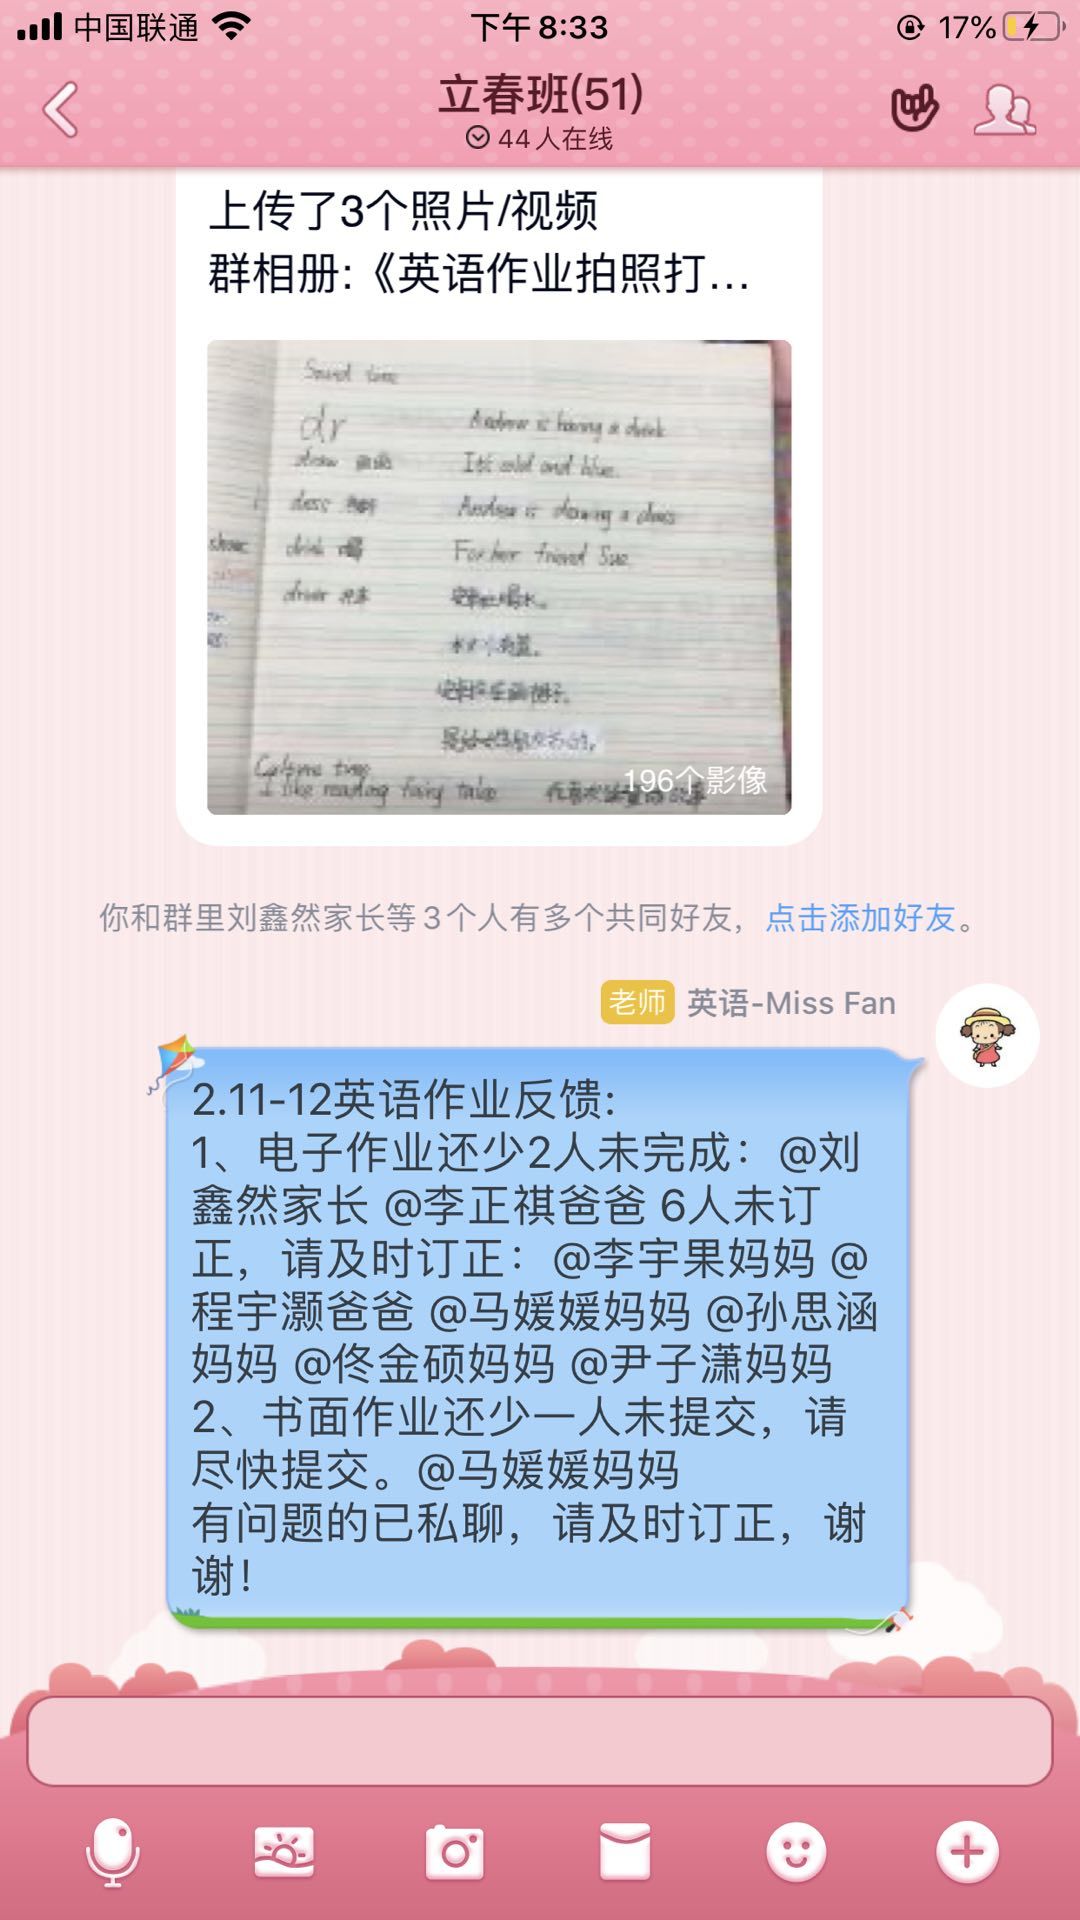 中国联通
下午8:33
17%
立春班(51)
44人在线
上传了3个照片/视频
群相册:《英语作业拍照打...
Sound time
dr
Andrew is having a drink
draw
It's cold and blue.
Andrew is drawing a dress
drink 喝
For her friend Sue
driver
Culture time
I like reading fairy tales
196个影像
你和群里刘鑫然家长等3个人有多个共同好友，点击添加好友。
老师 英语-Miss Fan
2.11-12英语作业反馈:
1、电子作业还少2人未完成：@刘
鑫然家长 @李正祺爸爸 6人未订
正，请及时订正：@李宇果妈妈 @
程宇灏爸爸 @马媛媛妈妈 @孙思涵
妈妈 @佟金硕妈妈 @尹子潇妈妈
2、书面作业还少一人未提交，请
尽快提交。@马媛媛妈妈
有问题的已私聊，请及时订正，谢
谢！